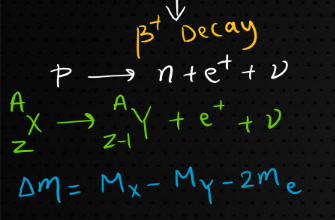 β⁺ Decay
P ⟶ n + e⁺ + ν
ᴬ_Z X ⟶ ᴬ_{Z-1} Y + e⁺ + ν
Δm = M_X - M_Y - 2m_e